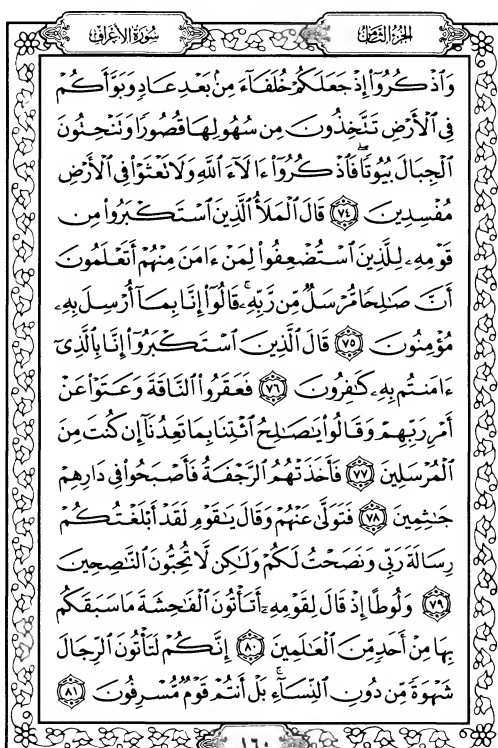 الجزء الثامن
سورة الأعراف
وَاذْكُرُوا إِذْ جَعَلَكُمْ خُلَفَاءَ مِنْ بَعْدِ عَادٍ وَبَوَّأَكُمْ
فِي الْأَرْضِ تَتَّخِذُونَ مِنْ سُهُولِهَا قُصُورًا وَتَنْحِتُونَ
الْجِبَالَ بُيُوتًا ۖ فَاذْكُرُوا ءَالَاءَ اللَّهِ وَلَا تَعْثَوْا فِي الْأَرْضِ
مُفْسِدِينَ ٧٤ قَالَ الْمَلَأُ الَّذِينَ اسْتَكْبَرُوا مِنْ
قَوْمِهِ لِلَّذِينَ اسْتُضْعِفُوا لِمَنْ ءَامَنَ مِنْهُمْ أَتَعْلَمُونَ
أَنَّ صَٰلِحًا مُرْسَلٌ مِّن رَّبِّهِ ۚ قَالُوا إِنَّا بِمَا أُرْسِلَ بِهِ
مُؤْمِنُونَ ٧٥ قَالَ الَّذِينَ اسْتَكْبَرُوا إِنَّا بِالَّذِي
ءَامَنتُم بِهِ كَٰفِرُونَ ٧٦ فَعَقَرُوا النَّاقَةَ وَعَتَوْا عَنْ
أَمْرِ رَبِّهِمْ وَقَالُوا يَٰصَٰلِحُ ائْتِنَا بِمَا تَعِدُنَا إِن كُنتَ مِنَ
الْمُرْسَلِينَ ٧٧ فَأَخَذَتْهُمُ الرَّجْفَةُ فَأَصْبَحُوا فِي دَارِهِمْ
جَٰثِمِينَ ٧٨ فَتَوَلَّىٰ عَنْهُمْ وَقَالَ يَٰقَوْمِ لَقَدْ أَبْلَغْتُكُمْ
رِسَالَةَ رَبِّي وَنَصَحْتُ لَكُمْ وَلَٰكِن لَّا تُحِبُّونَ النَّٰصِحِينَ
٧٩ وَلُوطًا إِذْ قَالَ لِقَوْمِهِ أَتَأْتُونَ الْفَٰحِشَةَ مَا سَبَقَكُم
بِهَا مِنْ أَحَدٍ مِّنَ الْعَٰلَمِينَ ٨٠ إِنَّكُمْ لَتَأْتُونَ الرِّجَالَ
شَهْوَةً مِّن دُونِ النِّسَاءِ ۚ بَلْ أَنتُمْ قَوْمٌ مُّسْرِفُونَ ٨١
١٦٠